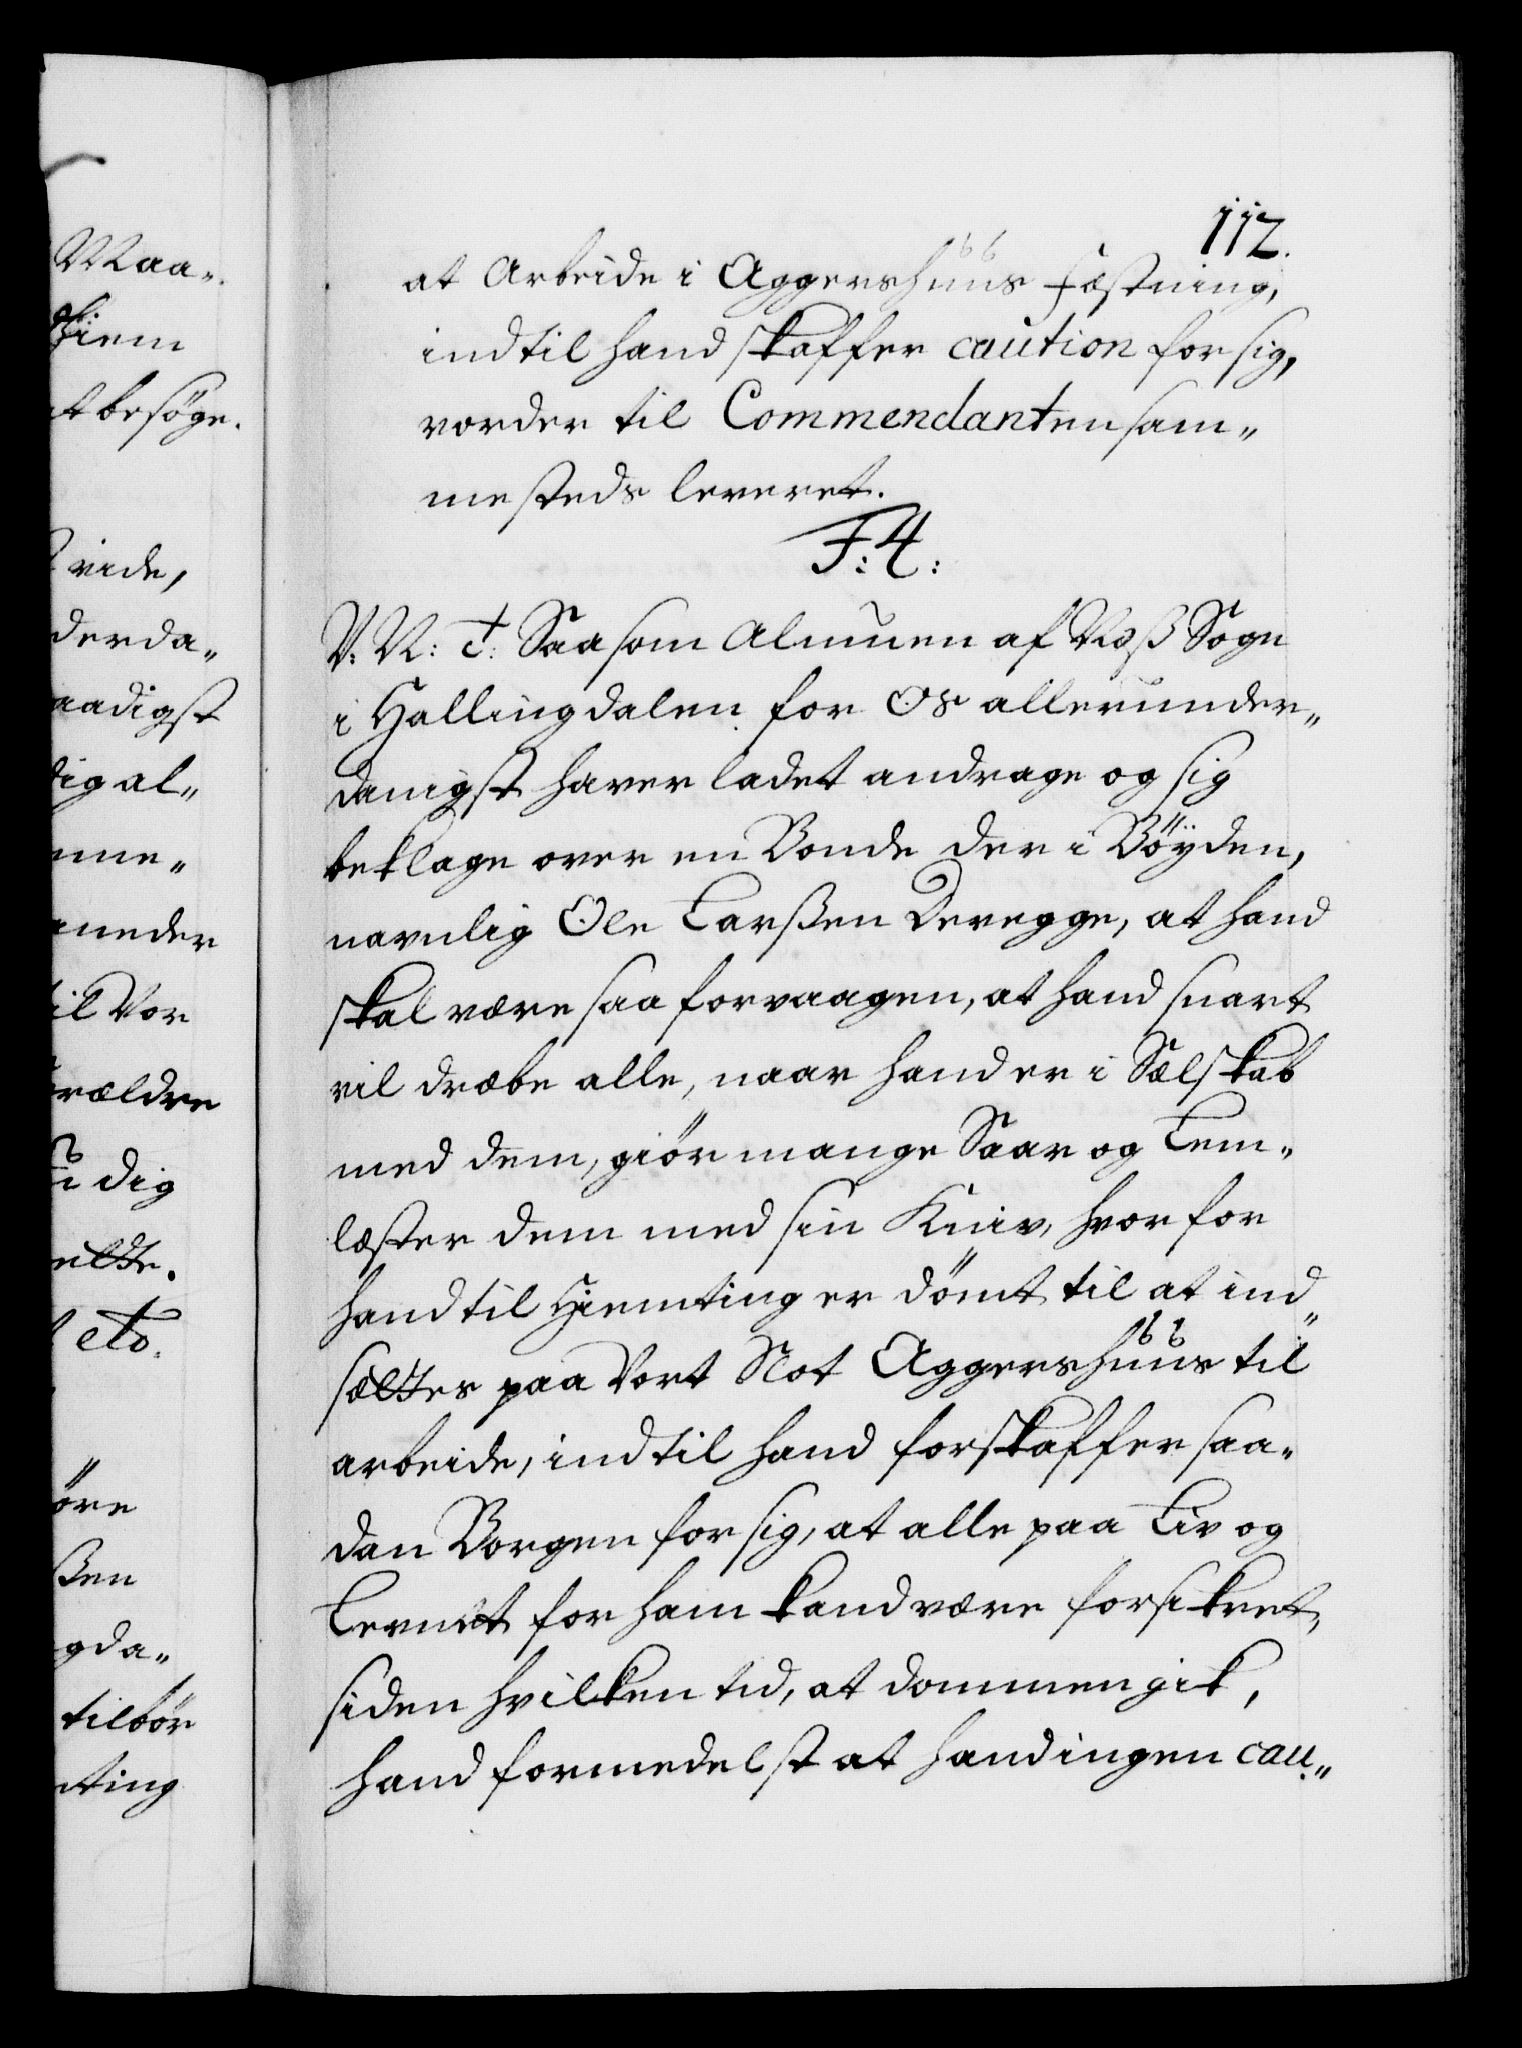 Maa„
Hiem
at besøge.
vide,
derda„
aadigst
dig al„
nne„
aneder
til Vor
rældre
dig
eltte.
etc.
öre
ßen
gda„
tilbör
ting
112.
at Arbeide i Aggershuus Fæstning,
indtil hand skaffer caution for sig,
vorder til Commendanten sam„
mesteds leveret.
F: 4:
V: N: T: Saasom Almuen af Næß Sogn
i Hallingdalen for Os allerunder„
danigst haver ladet andrage og sig
beklage over en Bonde der i Böyden,
navnlig Ole Larßen Deregge, at hand
skal være saa forvaagen, at hand snart
vil dræbe alle, naar hand er i Sælskab
med dem, giör mange Saar og Lem„
læster dem med sin Kniv, hvorfor
hand til Hiemting er dömt til at ind„
sættes paa Vort Slot Aggershuus til
arbeide, indtil hand forskaffer saa„
dan Borgen for sig, at alle paa Liv og
Levnet for ham kand være forsikret,
siden hvilken tid, at dommen gik,
hand formedelst at hand ingen cau„